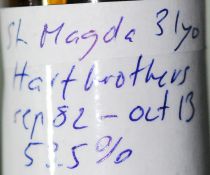 St. Magda 31yo
Hart brothers
sep 82 - oct 13
53.5%